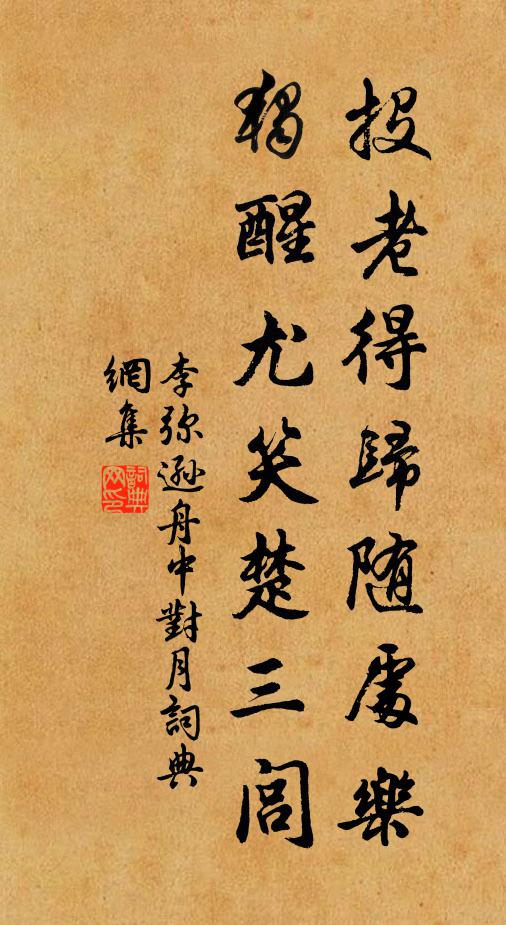 投老得歸随處樂
獨醒尤笑楚三閭
李弥遜舟中對月詞典
網集
詞典網印